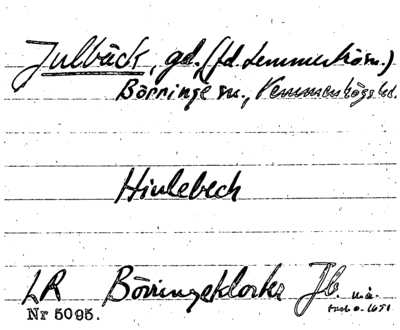 Julbäck, gd. (fd. Lemmeströ sn.)
Börringe sn., Vemmenhögs hd.
Hiulebech
LR Börringekloster Jb.
Nr 5095.